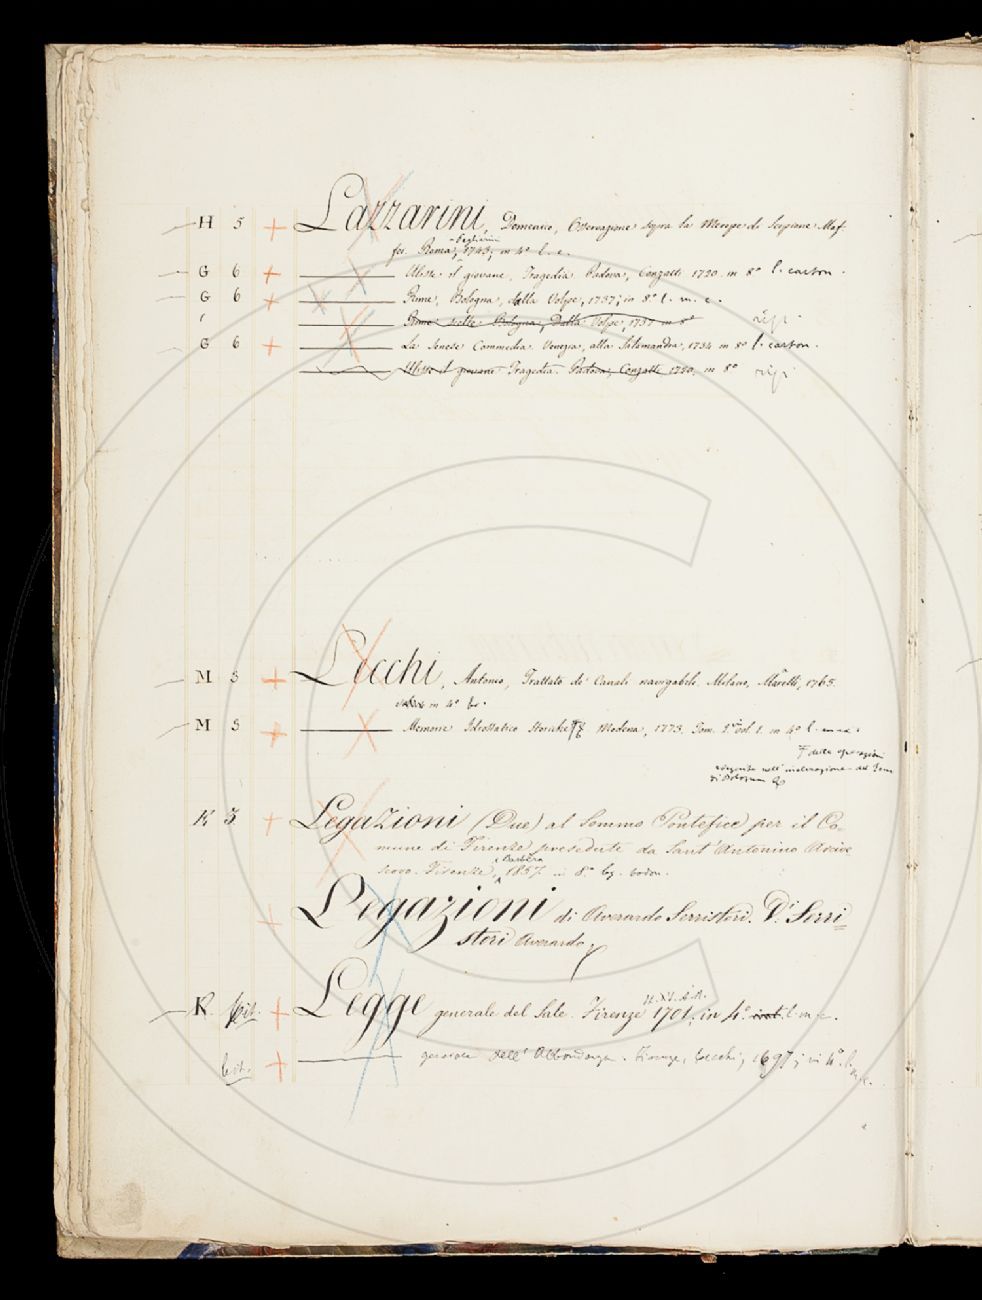 H 5 + Lazzarini, Domenico, Osservazione sopra la Merope di Scipione Maf
fei Roma, Pagliarini 1743, in 4º l. c.
G 6 + Ulisse il giovane, Tragedia. Padova, Conzatti 1720. in 8º l. carton.
G 6 + Rime, Bologna, dalla Volpe, 1737, in 8º l. m. c.
Rime scelte. Bologna, Dalla Volpe, 1737 in 8º
G 6 + La Sanese Commedia. Venezia, alla Salamandra, 1734 in 8º l. carton.
Ulisse il giovane Tragedia. Padova, Conzatti 1720, in 8º
M 5 + Lecchi, Antonio, Trattato de' Canali navigabili, Milano, Marelli, 1765.
in 4º
M 5 + Memorie Idrostatico Storiche Modena, 1773. Tom. 2 Vol 1. in 4º
delle operazioni
eseguite nell' inalveazione del Reno
di Bologna
K 3 + Legazioni (Due) al Sommo Pontefice per il Co-
mune di Firenze presedute da Sant' Antonino Arcive
scovo. Firenze, Barbèra 1857. in 8º leg. bodon.
+ Legazioni di Averardo Serristori. Dº Serri
stori Averardo
K. bit. + Legge generale del Sale. Firenze 1701, in 4º
bit. + generale dell' Abbondanza. Firenze, 1697, in 4º